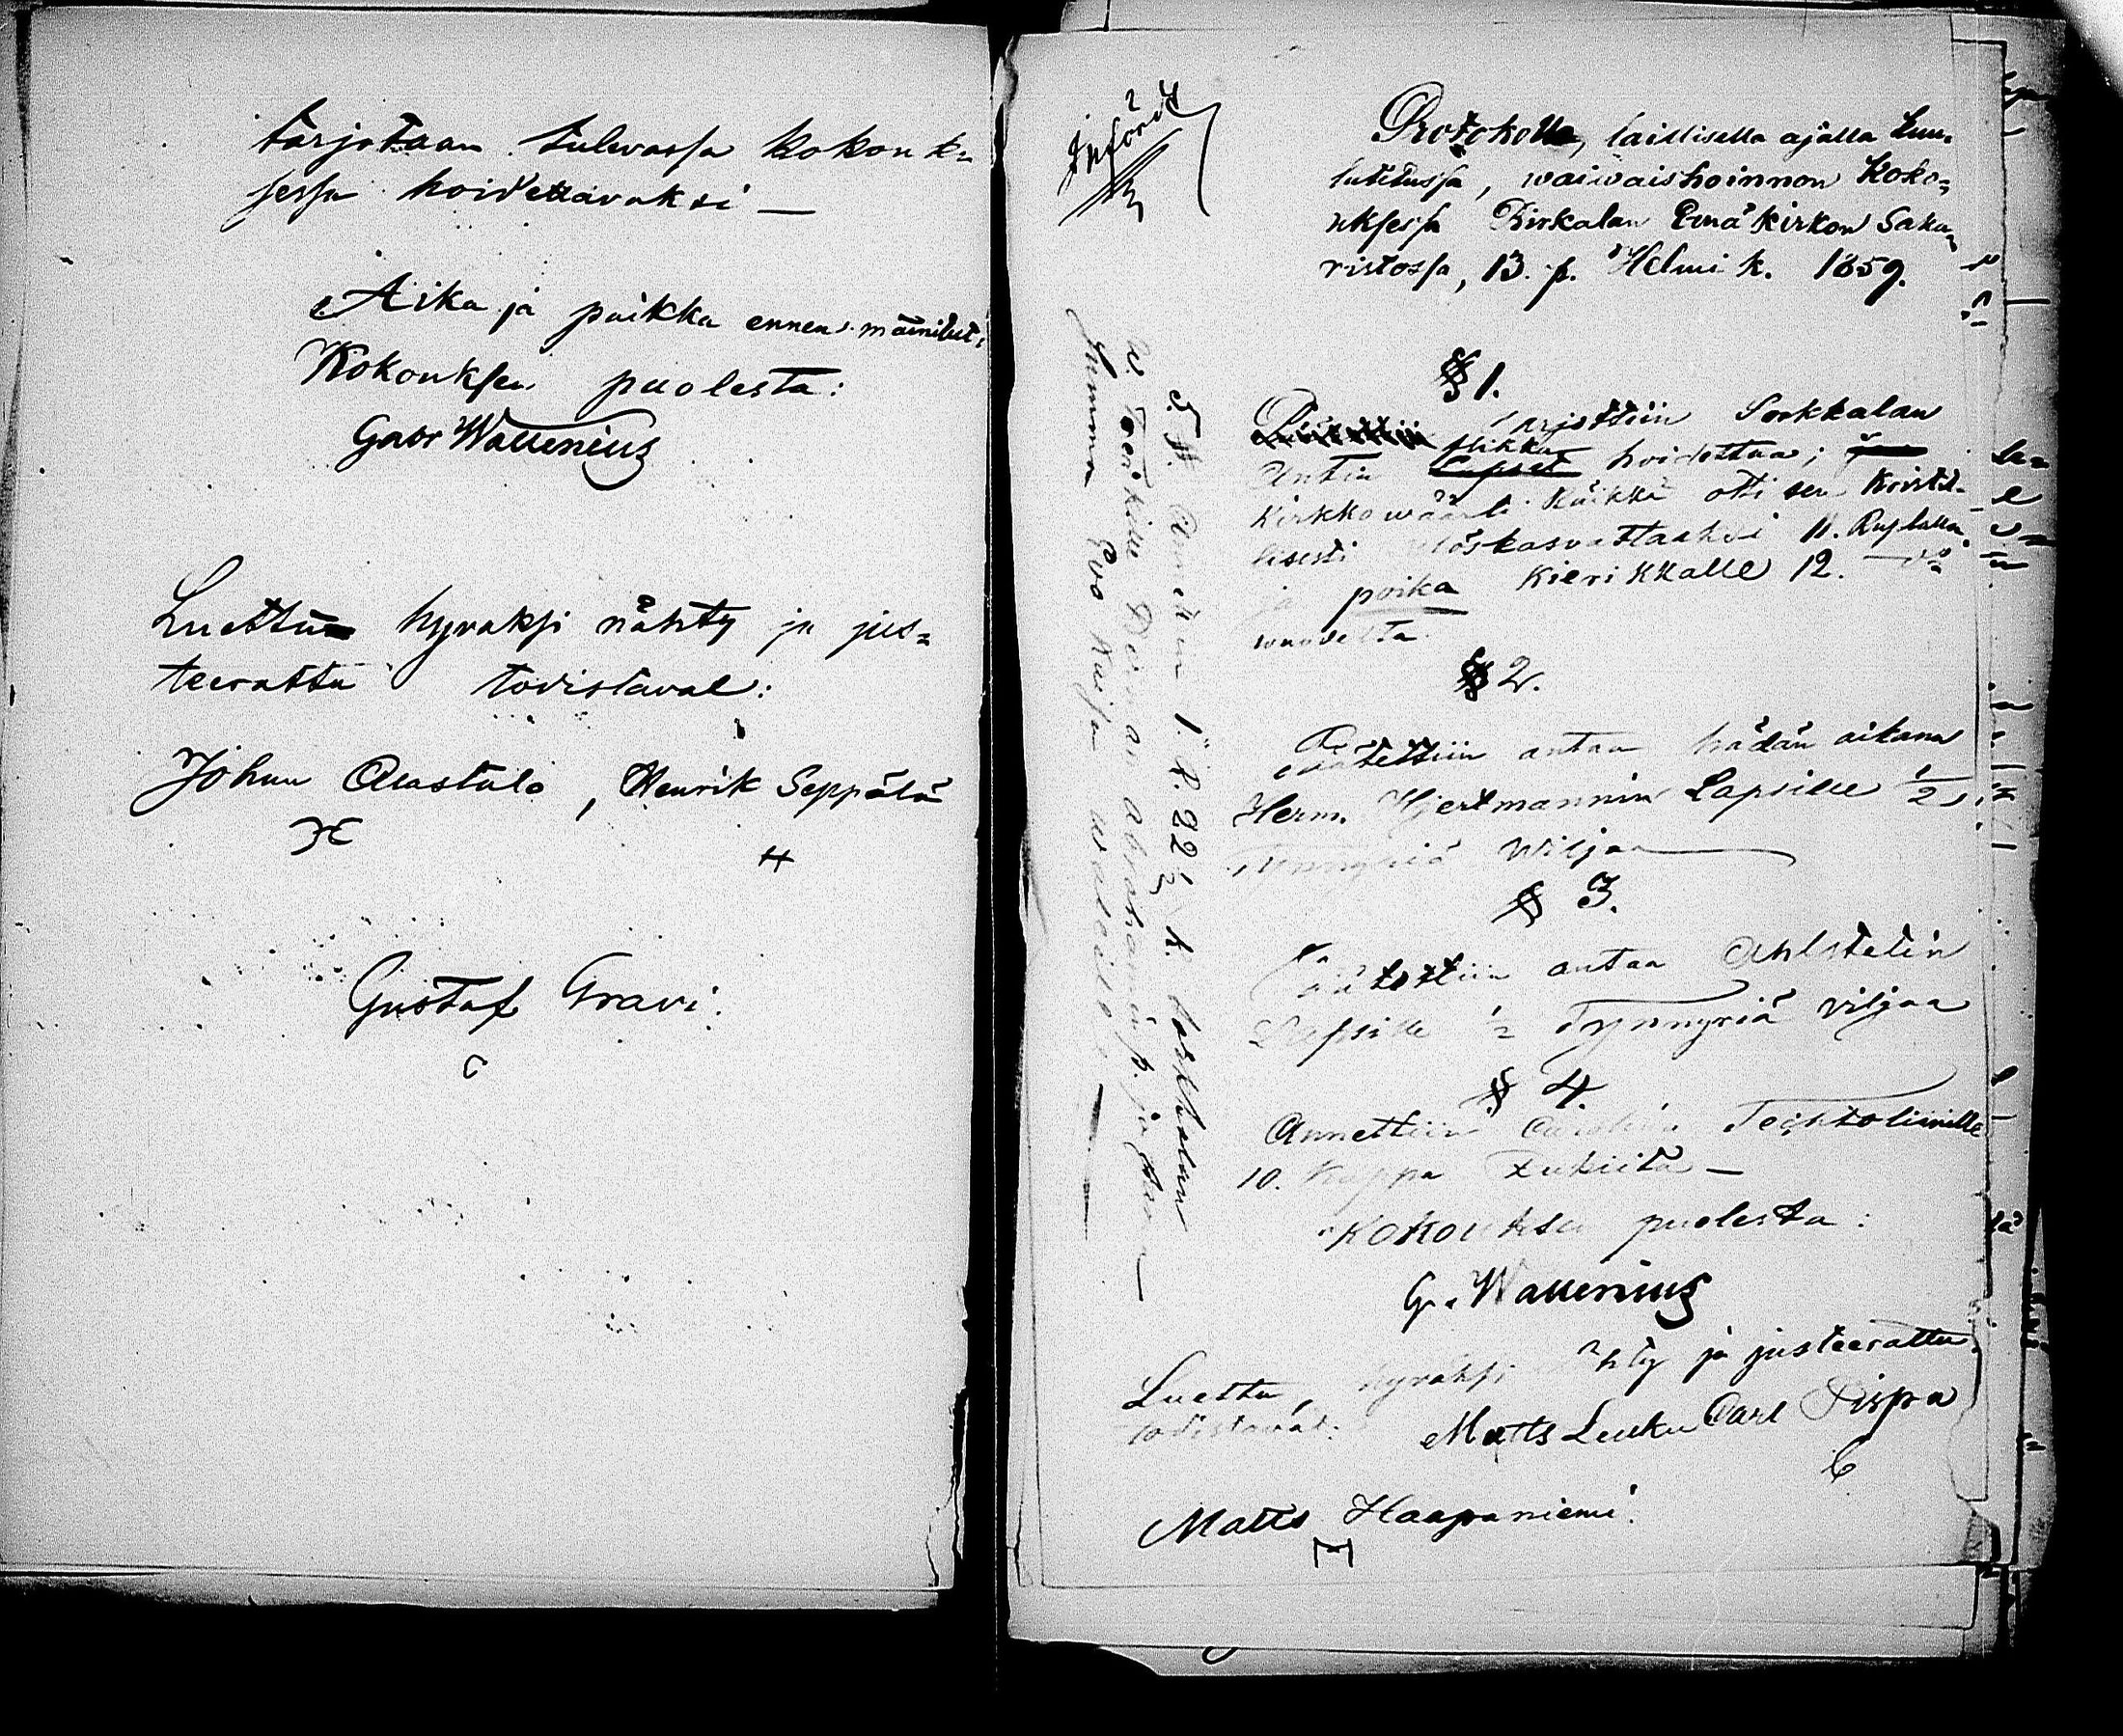 tarjotaan tulevassa kokouk=
sessa hoidettavaksi —
Aika ja paikka ennen mainitut.
Kokouksen puolesta:
Gabr Wallenius
Luettu hyvaksi nähty ja jus=
teerattu todistavat:
Johan Alastalo, Henrik Seppälä
Gustaf Gravi.
Infördt
Protokolla, laillisella ajalla kuu=
lutetussa, waiwaishoinnon Koko=
uksessa Pirkalan Emäkirkon Saka=
ristossa, 13. p. Helmi k. 1859.
§ 1.
Tarjottiin Sorkkalan
Antin flikka hoidettaa;
Kirkkowäärti Kaikki otti sen Kristil=
lisesti ylöskasvattaaksi 11. Ruplalla
ja poika Kierikkalle 12.
wuodelta
§ 2.
Päätettiin antaa hädän aikana
Herm. Hjertmannin Lapsille 1/2
Tynnyriä Wiljaa —
§ 3.
Päätettiin antaa Ahlstetin
Lapsille 1/2 Tynnyriä viljaa
§ 4.
Annettiin Carolina
10. Kappa Rukiita —
Kokouksen puolesta:
G. Wallenius
Luettu, hyvaksi nähty ja justeerattu
todistavat: Matts Leuku Carl Pispa
Matts Haapaniemi.
1. R. 22 1/2 k.